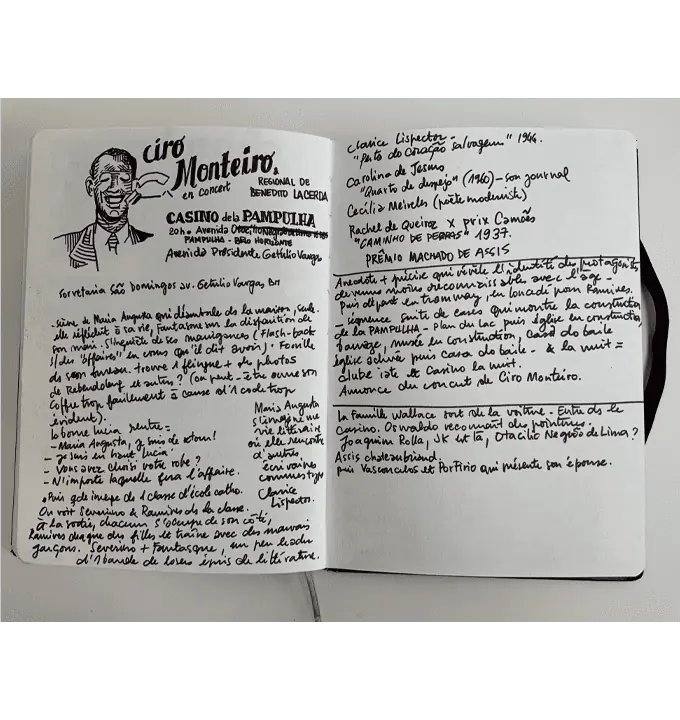 Ciro
Monteiro &
en concert
REGIONAL DE
BENEDITO LACERDA
CASINO de la PAMPULHA
20h. Avenida
PAMPULHA - BELO HORIZONTE
Avenida Presidente Getúlio Vargas
Sorvetaria São Domingos av. Getulio Vargas BH
- Scène de Maria Augusta qui déambule ds la maison, seule.
elle réfléchit à sa vie, fantasme sur la disparition de
son mari. S'inquiète de ses manigances (Flash-back
s/des "affaires" en cours qu'il dit avoir). Fouille
ds son bureau. trouve 1 flingue + des photos
de Rebendoleng et autres? (on peut-être ouvre son
coffre trop facilement à cause d'1 code trop
évident).
la bonne Lucia rentre =
- Maria Augusta, je suis de retour!
- Je suis en haut Lucia
- Vous avez choisi votre robe?
- N'importe laquelle fera l'affaire.
Maria Augusta
s'imagine une
vie littéraire
où elle rencontre
d'autres
écrivaines
comme
Clarice
Lispector.
• Puis gde image de 1 classe d'école catho.
On voit Severino & Ramires ds la classe.
et la sortie, chacun s'occupe de son côté,
Ramires drague des filles et traîne avec des mauvais
garçons. Severino + fantasque, un peu leader
d'1 bande de losers épris de littérature.
Clarice Lispector -
"Perto do coração salvagem" 1944.
Carolina de Jesus
"Quarto de despejo" (1960) - son journal
Cecília Meireles (poète moderniste)
Rachel de Queiroz x prix Camões
"CAMINHO DE PEDRAS" 1937.
PRÊMIO MACHADO DE ASSIS
Anecdote + précise qui révèle l'identité des protagonistes
devenus moins reconnaissables avec l'âge -
Puis départ en tramway, en loucade pour Ramires.
- séquence suite de cases qui montre la construction
de la PAMPULHA - Plan du lac puis église en construction
barrage, musée en construction, casa do baile
église achevée puis casa do baile - & la nuit =
clube iate et Casino la nuit.
Annonce du concert de Ciro Monteiro.
La famille Wallace sort de la voiture - Entre ds le
Casino. Oswaldo reconnaît des pointures.
Joaquim Rolla, JK est là, Otacílio Negrão de Lima?
Assis chateaubriand.
puis Vasconcelos et Porfirio qui présente son épouse.